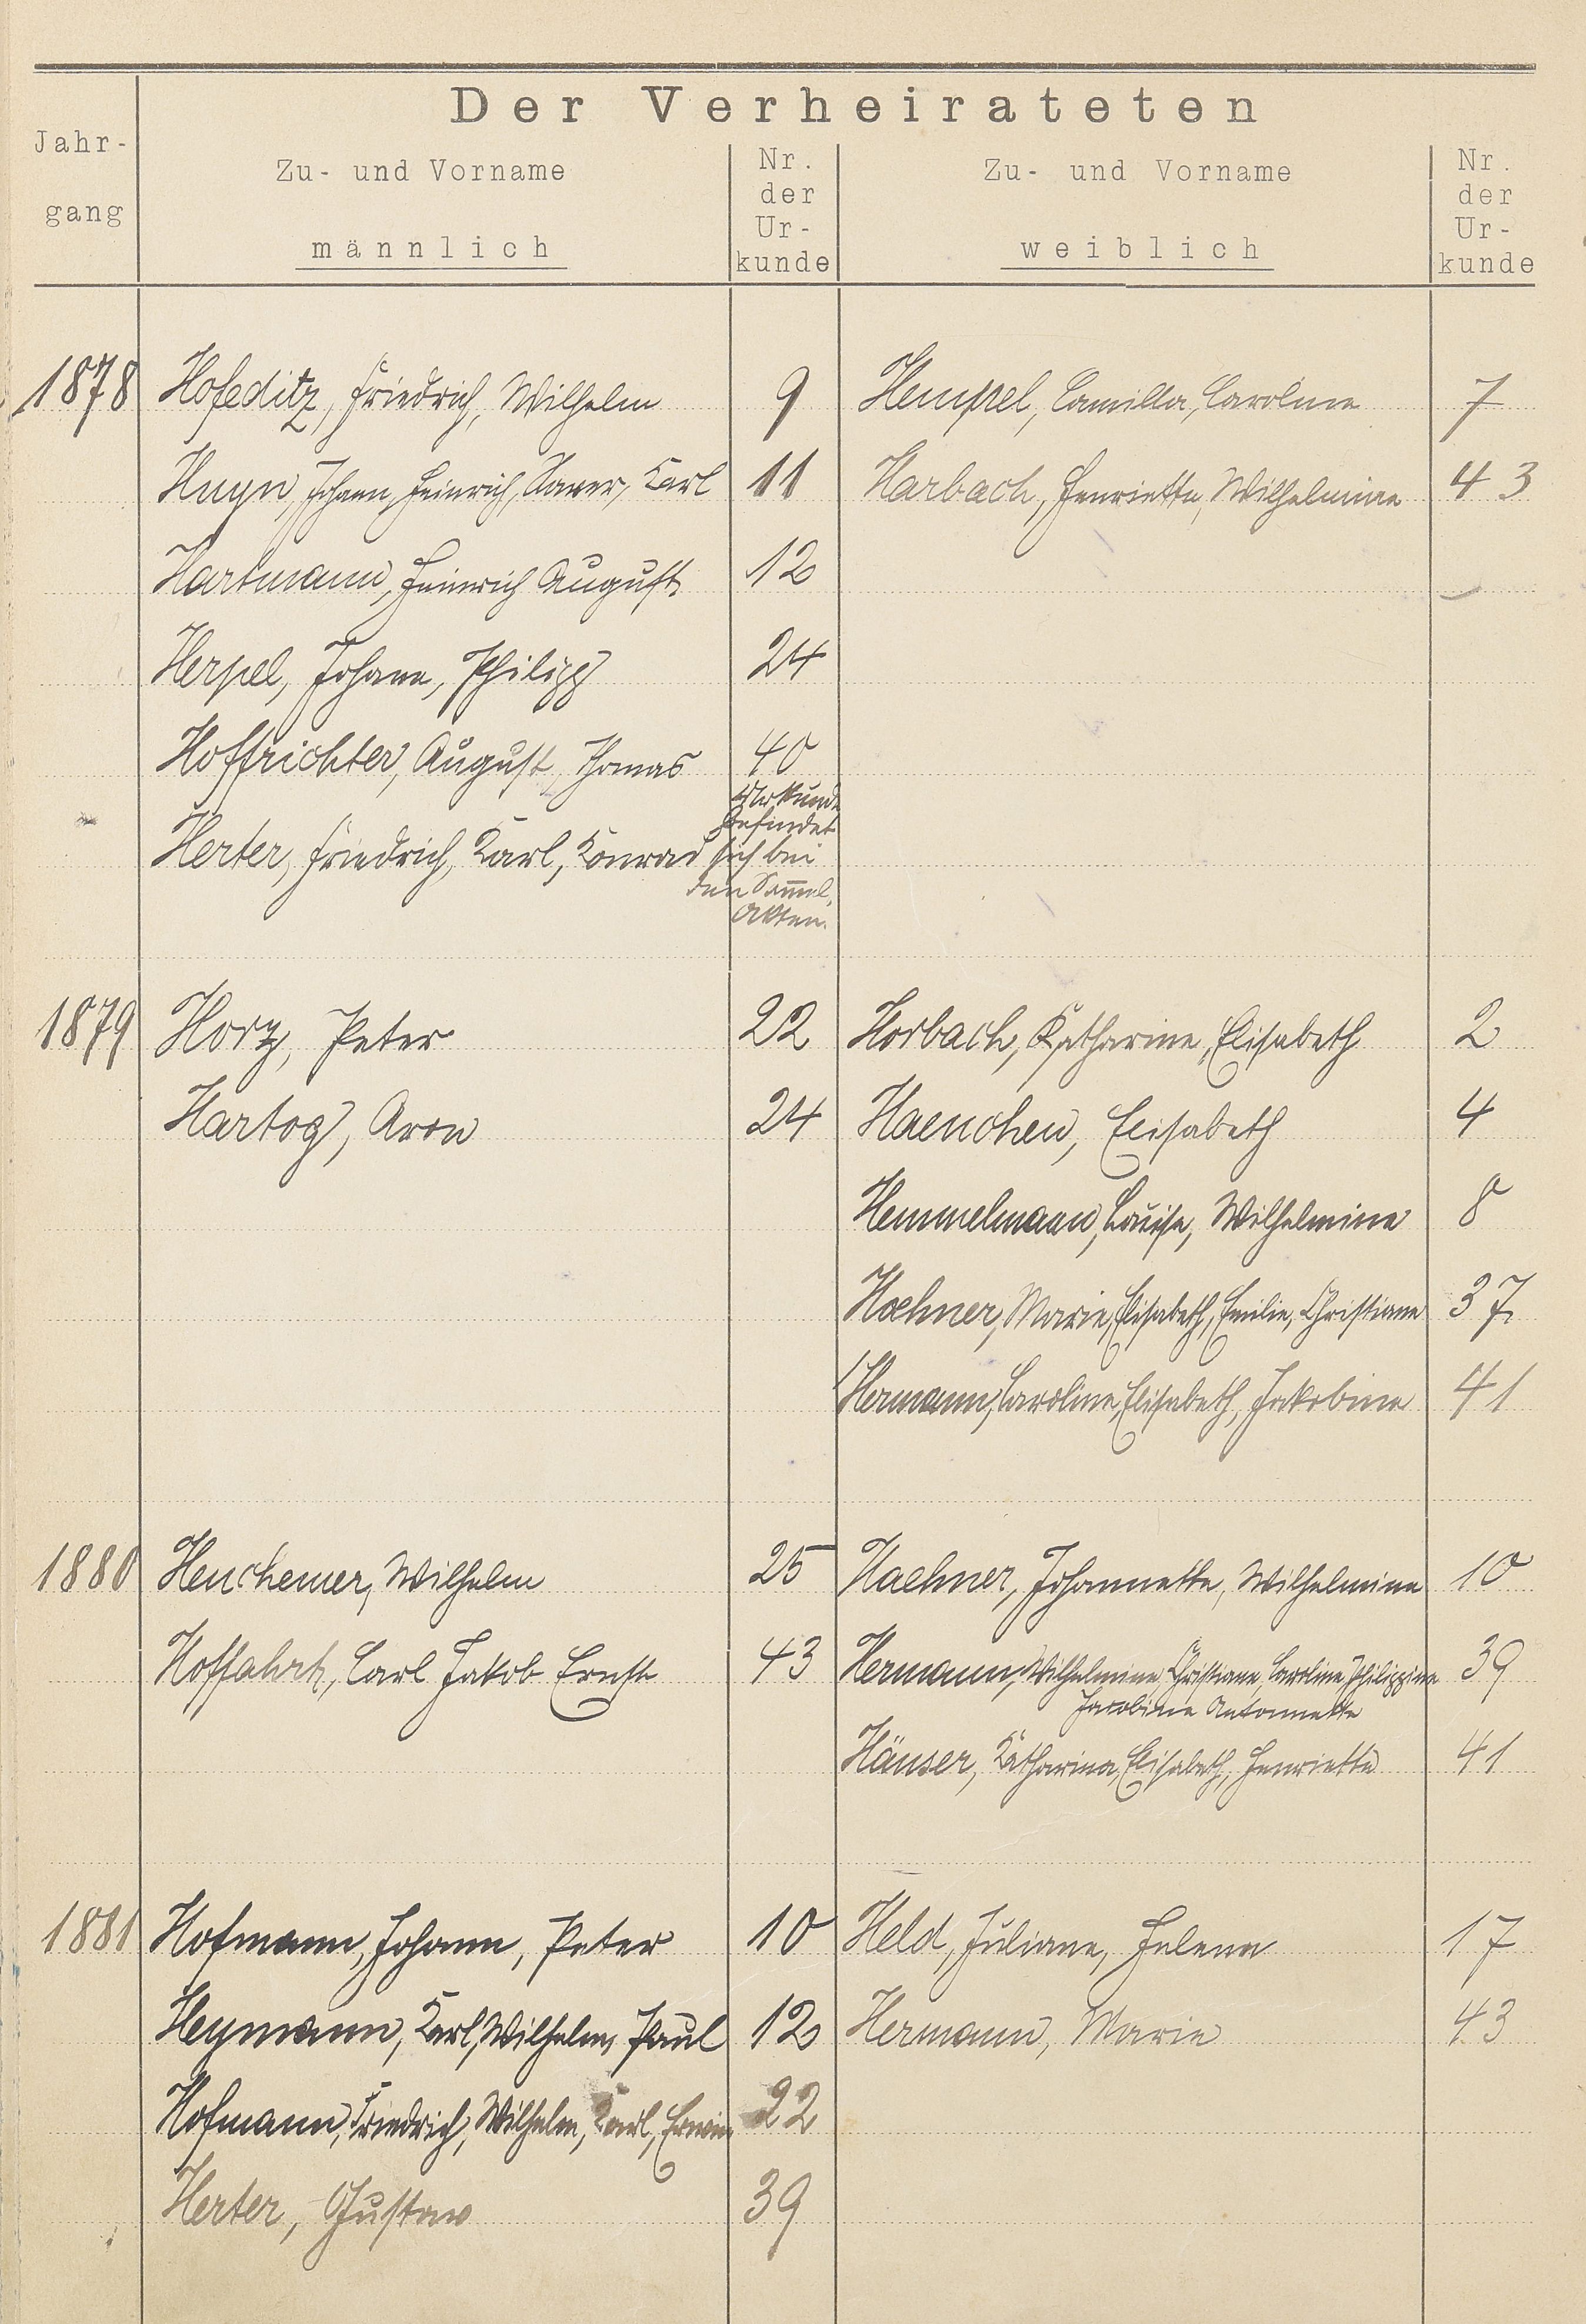 Der Verheirateten
Jahr-
gang
Zu- und Vorname
männlich
Nr.
der
Ur-
kunde
Zu- und Vorname
weiblich
Nr.
der
Ur-
kunde
1878 Hofeditz, Friedrich, Wilhelm 9 Hempel, Camilla, Caroline 7
Huyn, Johann, Heinrich, Xaver, Karl 11 Harbach, Henriette, Wilhelmine 43
Hartmann, Heinrich August 12
Herpel, Johann, Philipp 24
Hoffrichter, August, Thomas 40
Herter, Friedrich, Karl, Konrad
Urkunde
befindet
sich bei
den Sam̅el,
Akten.
1879 Horz, Peter 22 Horbach, Katharine, Elisabeth 2
Hartog, Aron 24 Haenchen, Elisabeth 4
Hemmelmann, Louise, Wilhelmine 8
Haehner, Marie, Elisabeth, Emilie, Christiane 37
Hermann, Caroline, Elisabeth, Jakobine 41
1880 Henchemer, Wilhelm 25 Haehner, Johannette, Wilhelmine 10
Hoffahrt, Carl Jakob Ernst 43 Hermann, Wilhelmine Christiane Caroline, Philippine 39
Jacobine Antonnette
Häuser, Katharina, Elisabeth, Henriette 41
1881 Hofmann, Johann, Peter 10 Held, Juliane, Helena 17
Heymann, Karl, Wilhelm, Paul 12 Hermann, Marie 43
Hofmann, Friedrich, Wilhelm, Karl, Erwin 22
Herter, Gustav 39